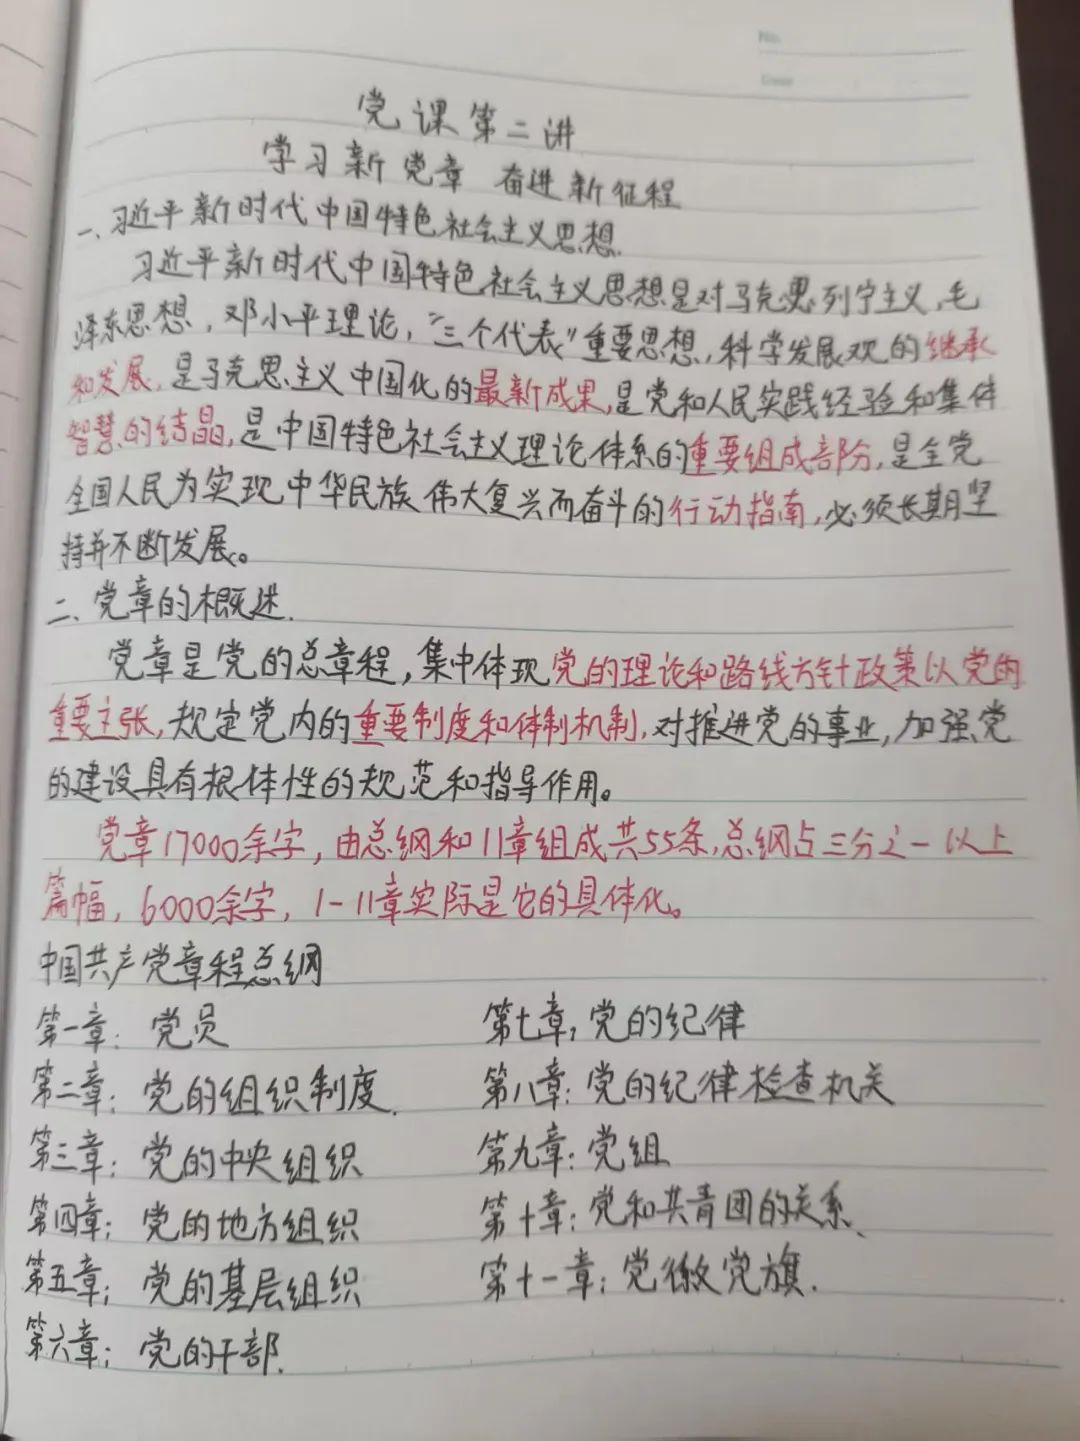 No.
Date
党课第二讲
学习新党章 奋进新征程
一、习近平新时代中国特色社会主义思想.
习近平新时代中国特色社会主义思想是对马克思列宁主义,毛
泽东思想,邓小平理论,“三个代表”重要思想,科学发展观的继承
和发展,是马克思主义中国化的最新成果,是党和人民实践经验和集体
智慧的结晶,是中国特色社会主义理论体系的重要组成部分,是全党
全国人民为实现中华民族伟大复兴而奋斗的行动指南,必须长期坚
持并不断发展。
二、党章的概述.
党章是党的总章程,集中体现党的理论和路线方针政策以党的
重要主张,规定党内的重要制度和体制机制,对推进党的事业,加强党
的建设具有根体性的规范和指导作用。
党章17000余字,由总纲和11章组成共55条,总纲占三分之一以上
篇幅,6000余字,1-11章实际是它的具体化。
中国共产党章程总纲
第一章:党员 第七章,党的纪律
第二章:党的组织制度. 第八章:党的纪律检查机关
第三章:党的中央组织 第九章:党组
第四章;党的地方组织 第十章:党和共青团的关系、
第五章;党的基层组织 第十一章;党徽党旗.
第六章;党的干部.